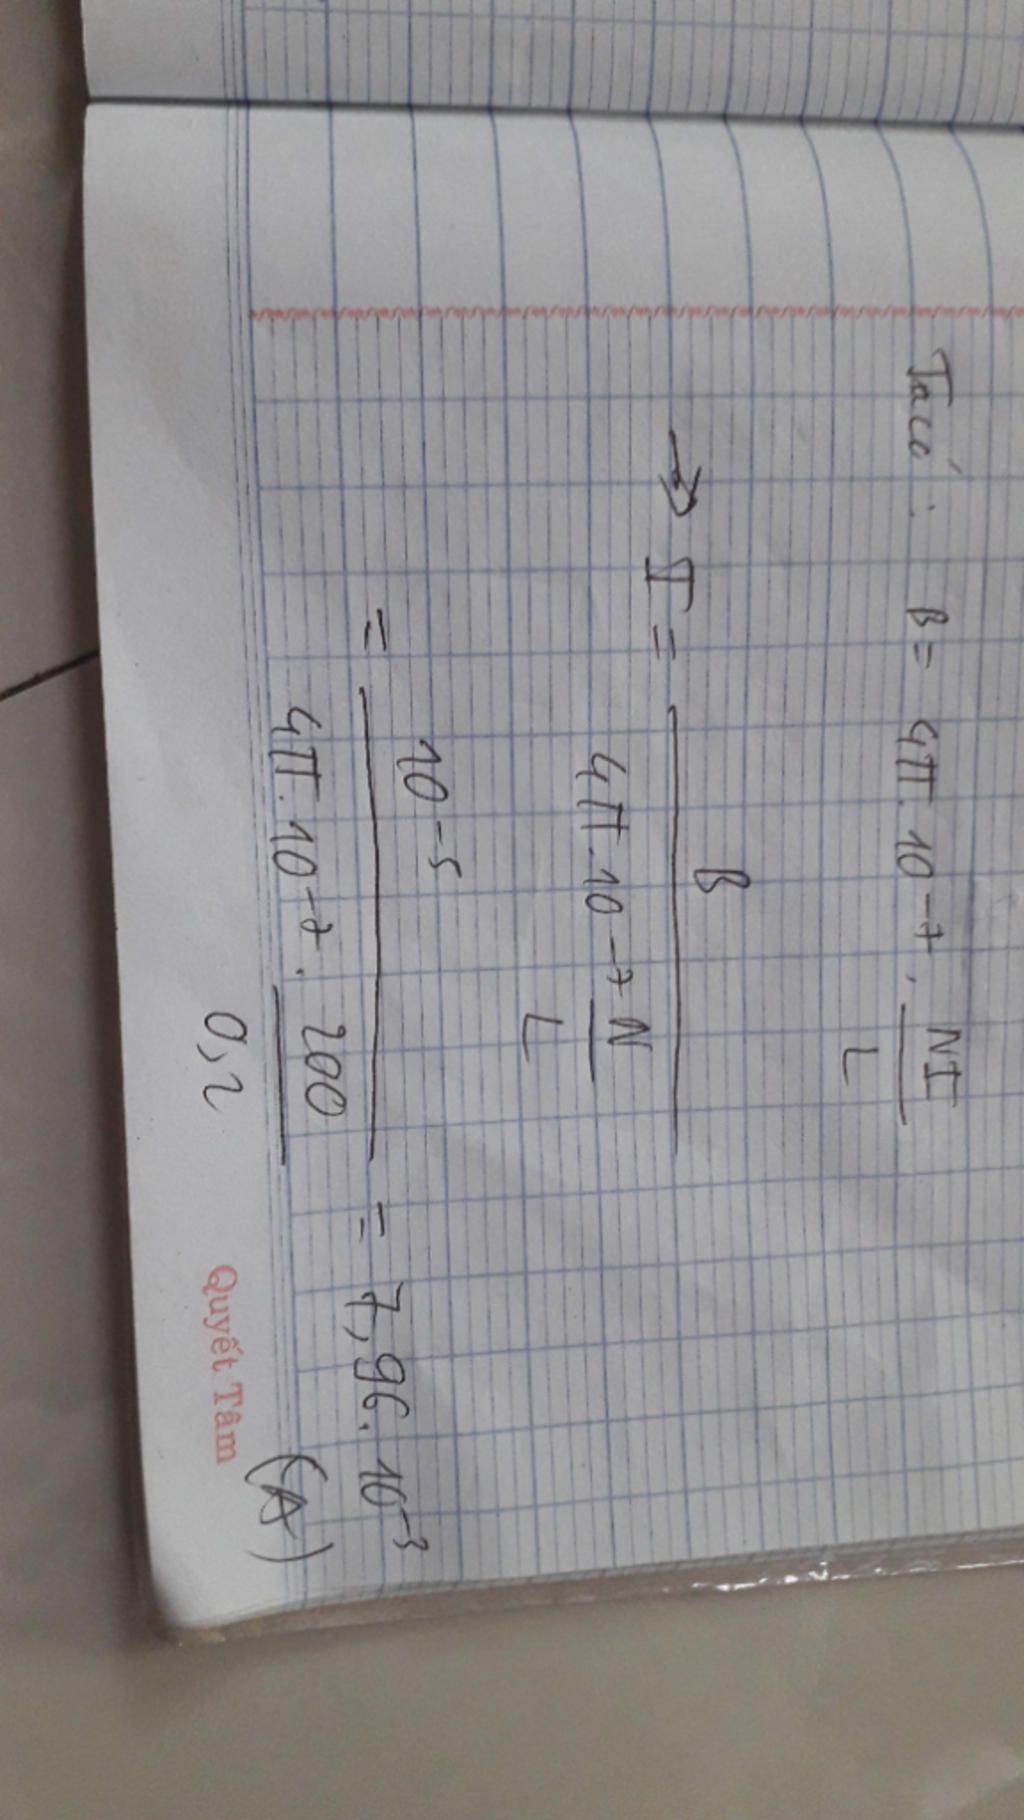 Ta có : B = 4π.10^-7 . NI/L
→ I = B/(4π.10^-7 N/L)
= 10^-5/(4π.10^-7 . 200/0,2) = 7,96.10^-3 (A)
Quyết Tâm